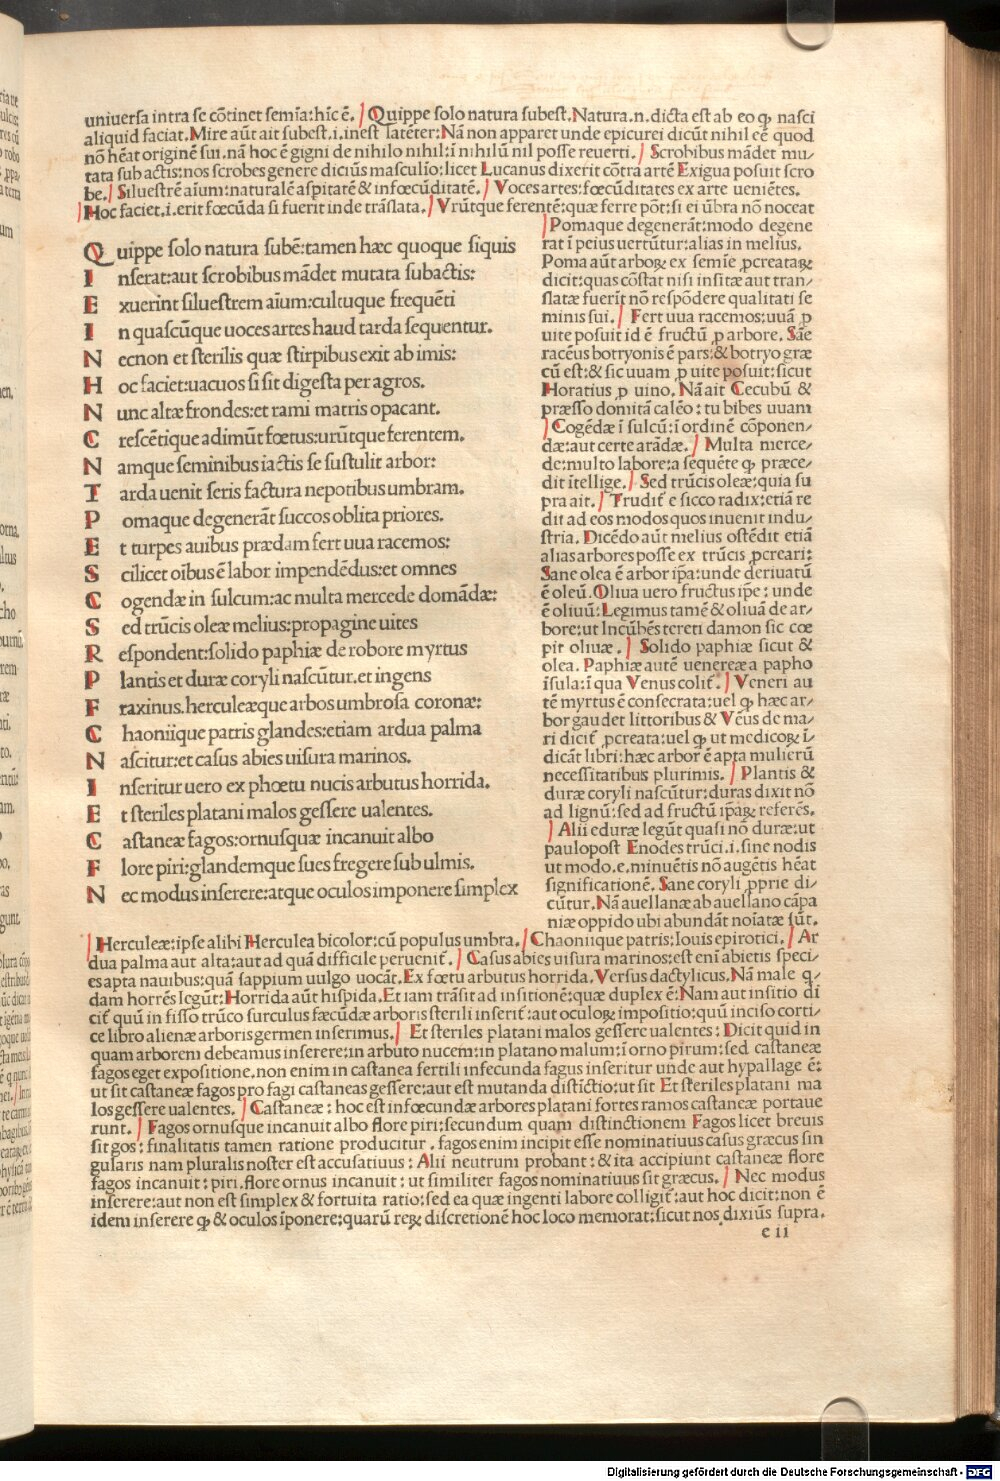 uniuersa intra se cōtinet semīa: hīc ē. Quippe solo natura subest. Natura .n. dicta est ab eo ꝙ nasci
aliquid faciat. Mire aūt ait subest .i. inest latēter: Nā non apparet unde epicurei dicūt nihil eē quod
nō hēat originē sui. nā hoc ē gigni de nihilo nihil: ī nihilū nil posse reuerti. Scrobibus mādet mu/
tata sub actis: nos scrobes genere diciūs masculīo: licet Lucanus dixerit cōtra artē Exigua posuit scro
be. Siluestrē aīum: naturalē aspitatē & infœcūditatē. Voces artes: fœcūditates ex arte ueniētes.
Hoc faciet .i. erit fœcūda si fuerit inde trāslata. Vrūtque ferentē: quæ ferre pōt: si ei ūbra nō noceat
Quippe solo natura subē: tamen hæc quoque siquis
Inserat: aut scrobibus mādet mutata subactis:
Exuerint siluestrem aīum: cultuque frequēti
In quascūque uoces artes haud tarda sequentur.
Necnon et sterilis quæ stirpibus exit ab imis:
Hoc faciet: uacuos si sit digesta per agros.
Nunc altæ frondes: et rami matris opacant.
Crescētique adimūt fœtus: urūtque ferentem.
Namque seminibus iactis se sustulit arbor:
Tarda uenit seris factura nepotibus umbram.
Pomaque degenerāt succos oblita priores.
Et turpes auibus prædam fert uua racemos:
Scilicet oībus ē labor impendēdus: et omnes
Cogendæ in sulcum: ac multa mercede domādæ:
Sed trūcis oleæ melius: propagine uites
Respondent: solido paphiæ de robore myrtus
Plantis et duræ coryli nascūtur. et ingens
Fraxinus. herculeæque arbos umbrosa coronæ:
Chaoniique patris glandes: etiam ardua palma
Nascitur: et casus abies uisura marinos.
Inseritur uero ex phœtu nucis arbutus horrida.
Et steriles platani malos gessere ualentes.
Castaneæ fagos: ornusquæ incanuit albo
Flore piri: glandemque sues fregere sub ulmis.
Nec modus inserere: atque oculos imponere simplex
Pomaque degenerāt: modo degene
rat ī peius uertūtur: alias in melius.
Poma aūt arboꝝ ex semīe ꝓcreataꝝ
dicit: quas cōstat nisi insitæ aut tran/
slatæ fuerīt nō respōdere qualitati se
minis sui. Fert uua racemos: uuā ꝓ
uite posuit id ē fructū ꝓ arbore. Sāe
racēus botryonis ē pars: & botryo græ
cū est: & sic uuam ꝓ uite posuit: sicut
Horatius ꝓ uino. Nā ait Cecubū &
præsso domitā calēo: tu bibes uuam
Cogēdæ ī sulcū: ī ordinē cōponen/
dæ: aut certe arādæ. Multa merce/
de: multo labore: a sequēte ꝙ præce/
dit ītellige. Sed trūcis oleæ: quia su
pra ait. Trudit̄ e sicco radix: etiā re
dit ad eos modos quos inuenit indu/
stria. Dicēdo aūt melius ostēdit etiā
alias arbores posse ex trūcis ꝓcreari:
Sane olea ē arbor īpa: unde deriuatū
ē oleū. Oliua uero fructus ipē: unde
ē oliuū: Legimus tamē & oliuā de ar/
bore: ut Incūbēs tereti damon sic cœ
pit oliuæ. Solido paphiæ sicut &
olea. Paphiæ autē uenereæ a papho
īsula: ī qua Venus colit̄. Veneri au
tē myrtus ē consecrata: uel ꝙ hæc ar/
bor gaudet littoribus & Vēus de ma/
ri dicit̄ ꝓcreata: uel ꝙ ut medicoꝝ ī/
dicāt libri: hæc arbor ē apta mulierū
necessitatibus plurimis. Plantis &
duræ coryli nascūtur: duras dixit nō
ad lignū: sed ad fructū īpaꝝ referēs.
Alii eduræ legūt quasi nō duræ: ut
paulopost Enodes trūci .i. sine nodis
ut modo .e. minuētis nō augētis hēat
significationē. Sane coryli ꝓprie di/
cūtur. Nā auellanæ ab auellano cāpa
niæ oppido ubi abundāt noīatæ sūt.
Herculeæ: ipse alibi Herculea bicolor: cū populus umbra. Chaoniique patris: Iouis epirotici. Ar
dua palma aut alta: aut ad quā difficile peruenit̄. Casus abies uisura marinos: est enī abietis speci/
es apta nauibus: quā sappium uulgo uocāt. Ex fœtu arbutus horrida. Versus dactylicus. Nā male q̄/
dam horrēs legūt: Horrida aūt hispida. Et iam trāsit ad insitionē: quæ duplex ē: Nam aut insitio dī
cit̄ quū in fisso trūco surculus fæcūdæ arboris sterili inserit̄: aut oculoꝝ impositio: quū inciso corti/
ce libro alienæ arboris germen inserimus. Et steriles platani malos gessere ualentes: Dicit quid in
quam arborem debeamus inserere: in arbuto nucem: in platano malum: ī orno pirum: sed castaneæ
fagos eget expositione. non enim in castanea fertili infecunda fagus inseritur unde aut hypallage ē:
ut sit castaneæ fagos pro fagi castaneas gessere: aut est mutanda distīctio: ut sit Et steriles platani ma
los gessere ualentes. Castaneæ: hoc est infœcundæ arbores platani fortes ramos castaneæ portaue
runt. Fagos ornusque incanuit albo flore piri: secundum quam distinctionem Fagos licet breuis
sit gos: finalitatis tamen ratione producitur. fagos enim incipit esse nominatiuus casus græcus sin
gularis nam pluralis noster est accusatiuus: Alii neutrum probant: & ita accipiunt castaneæ flore
fagos incanuit: piri. flore ornus incanuit: ut similiter fagos nominatiuus sit græcus. Nec modus
inserere: aut non est simplex & fortuita ratio: sed ea quæ ingenti labore colligit̄: aut hoc dicit: non ē
idem inserere ꝙ & oculos īponere: quarū reꝝ discretionē hoc loco memorat: sicut nos dixiūs supra.
e ii
Digitalisierung gefördert durch die Deutsche Forschungsgemeinschaft - DFG